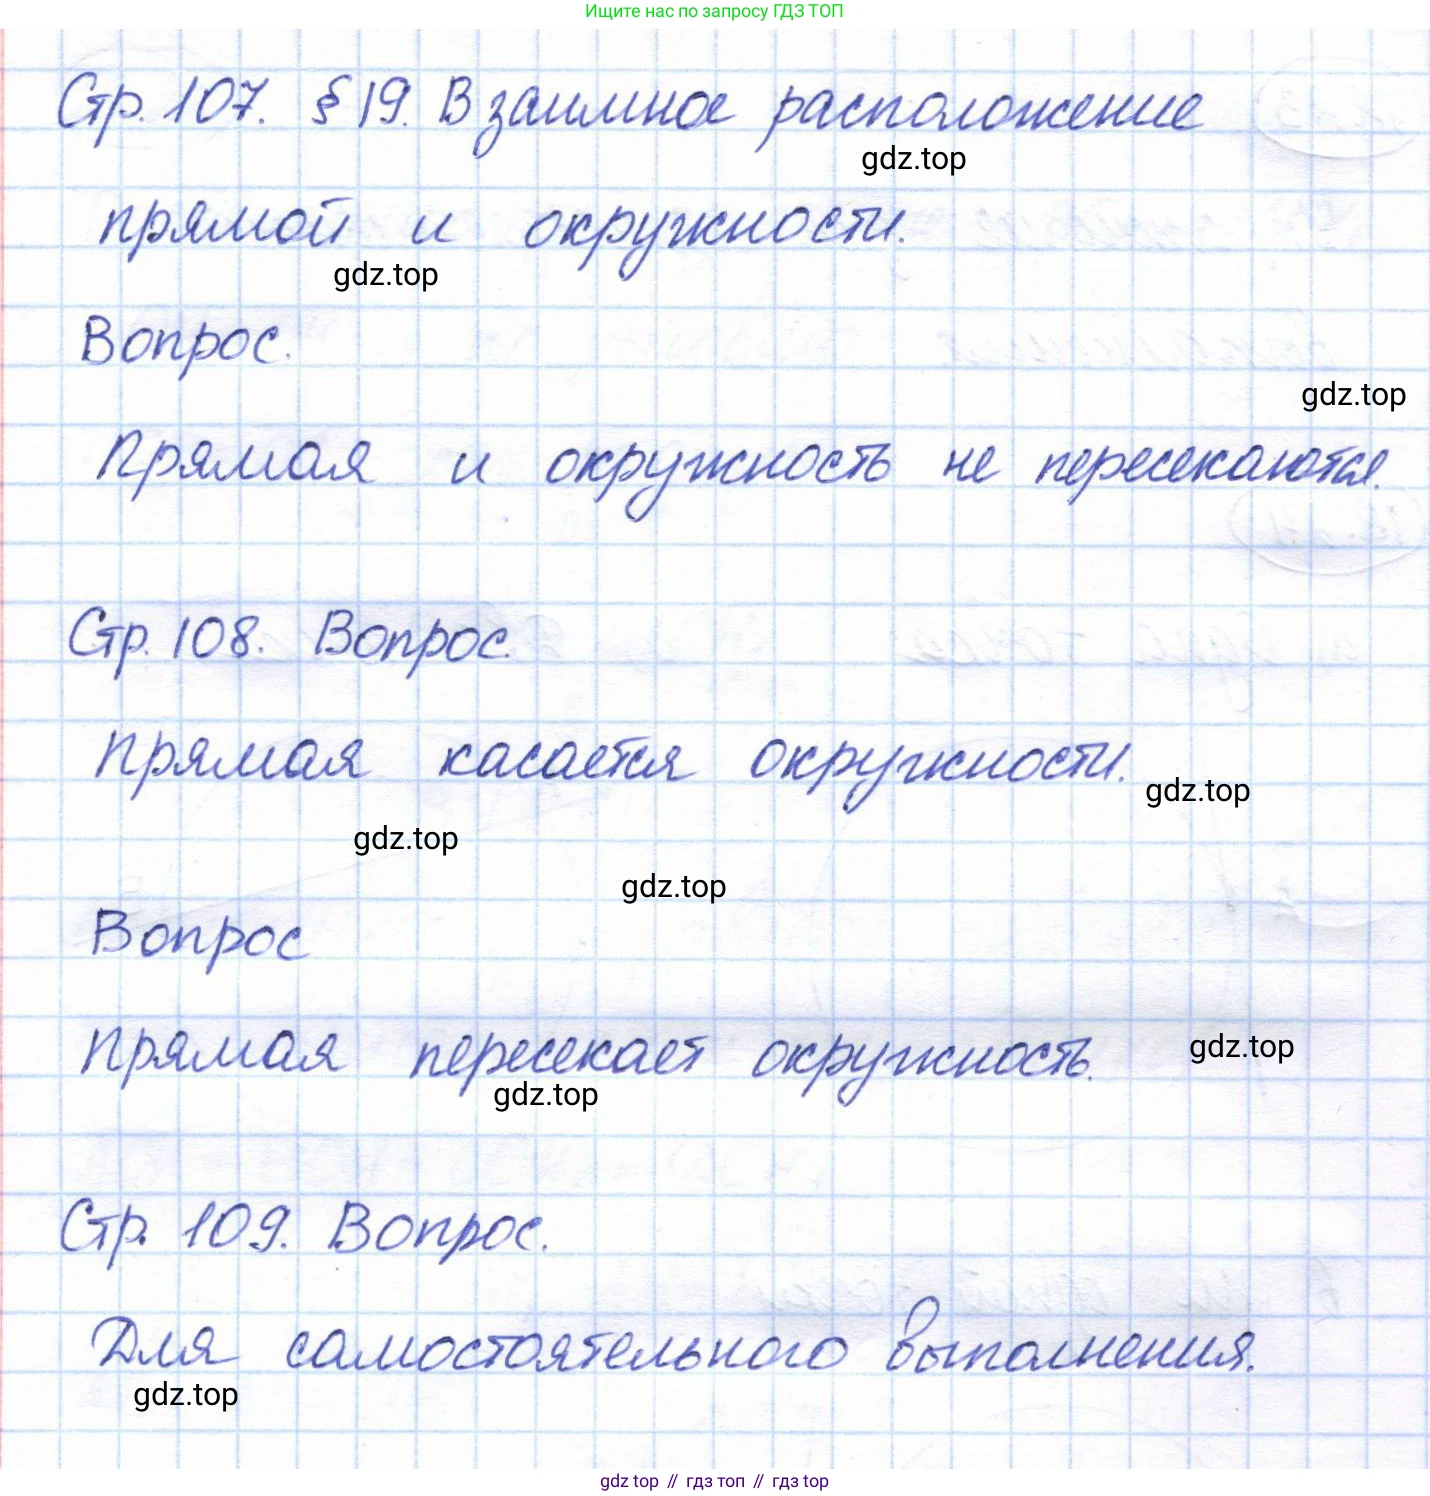 Ищите нас по запросу ГДЗ ТОП
Стр. 107. § 19. Взаимное расположение
gdz.top
прямой и окружности.
gdz.top
Вопрос.
gdz.top
Прямая и окружность не пересекаются.
Стр. 108. Вопрос.
Прямая касается окружности.
gdz.top
gdz.top
gdz.top
Вопрос
Прямая пересекает окружность.
gdz.top
gdz.top
Стр. 109. Вопрос.
Для самостоятельного выполнения.
gdz.top
gdz top // гдз топ // gdz top